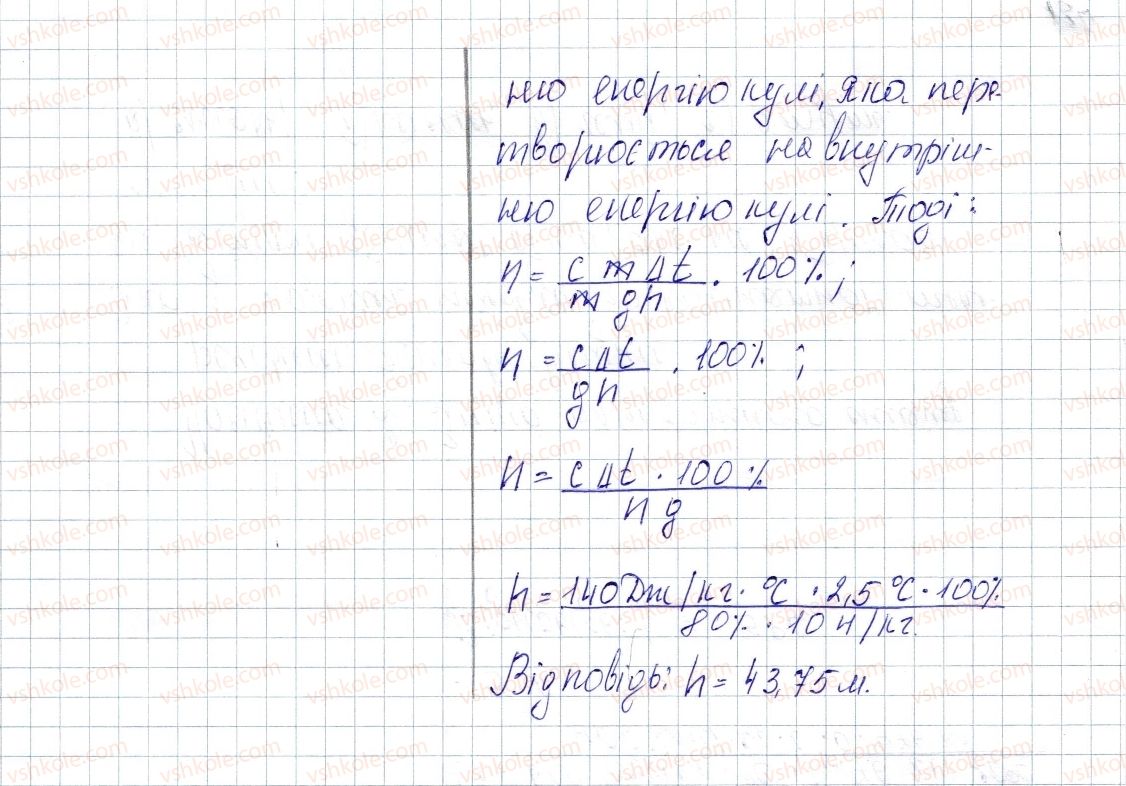 ню енергію кулі, яка пере-
творюється на внутріш-
ню енергію кулі. Тоді:
η = c m Δt / m g h · 100%;
η = c Δt / g h · 100%;
h = c Δt · 100% / η g
h = 140 Дж/кг · °C · 2,5 °C · 100% / 80% · 10 Н/кг.
Відповідь: h = 43,75 м.
vshkole.com